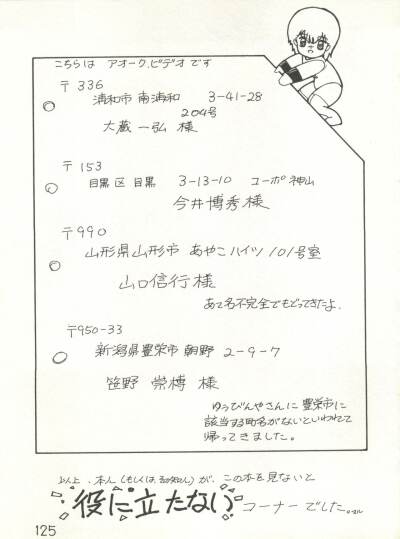 こちらは アオーク、ビデオ です
〒336
浦和市 南浦和 3-41-28
204号
大蔵一弘 様
〒153
目黒区 目黒 3-13-10 コーポ神山
今井博秀様
〒990
山形県山形市 あやこハイツ 101号室
山口信行様
あて名不完全でもどってきたよ.
〒950-33
新潟県豊栄市 朝野 2-9-7
笹野 崇榑 様
ゆうびんやさんに 豊栄市に
該当する町名がないといわれて
帰ってきました。
以上、本人(もしくは、お知り合い)が、この本を見ないと
役に立たない コーナーでした。
125